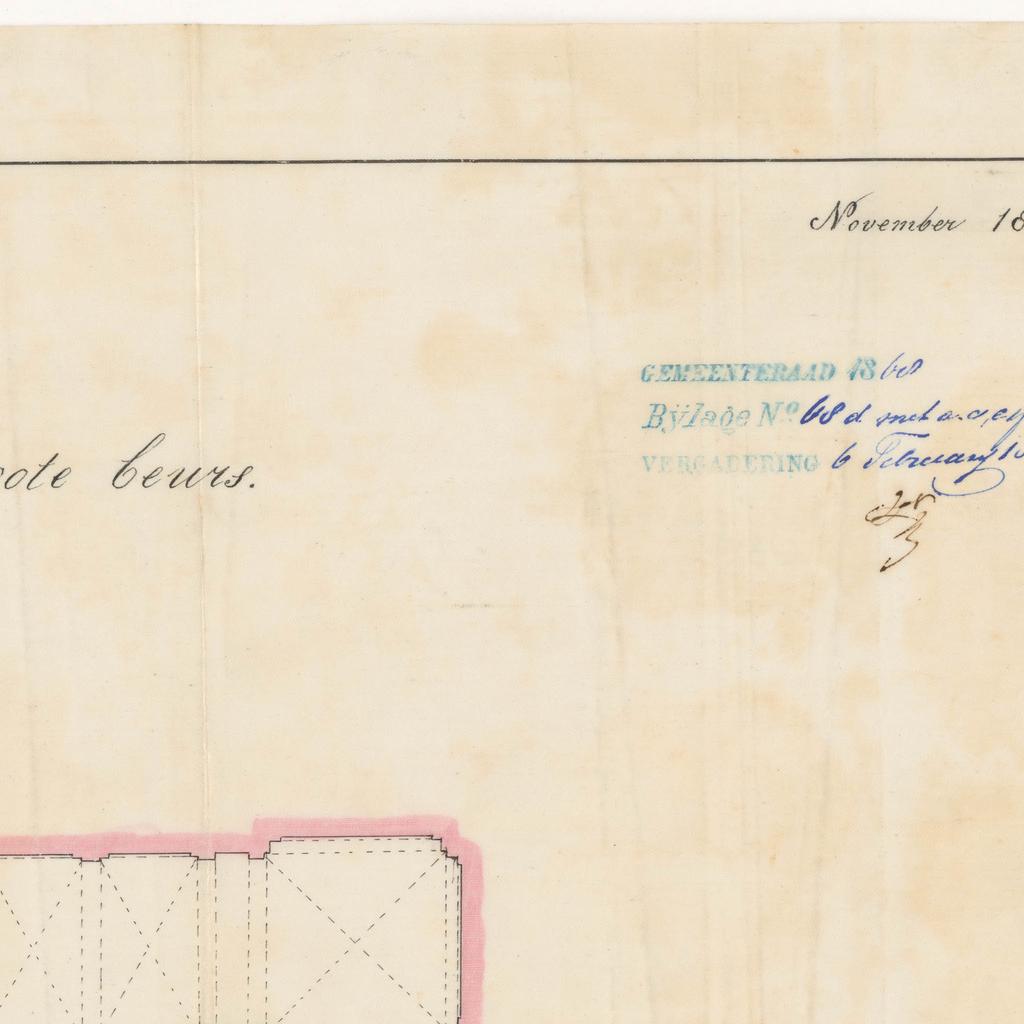 November 18
GEMEENTERAAD 1868
Bijlage No 68 d met a.
VERGADERING 6 February 18
ote beurs.